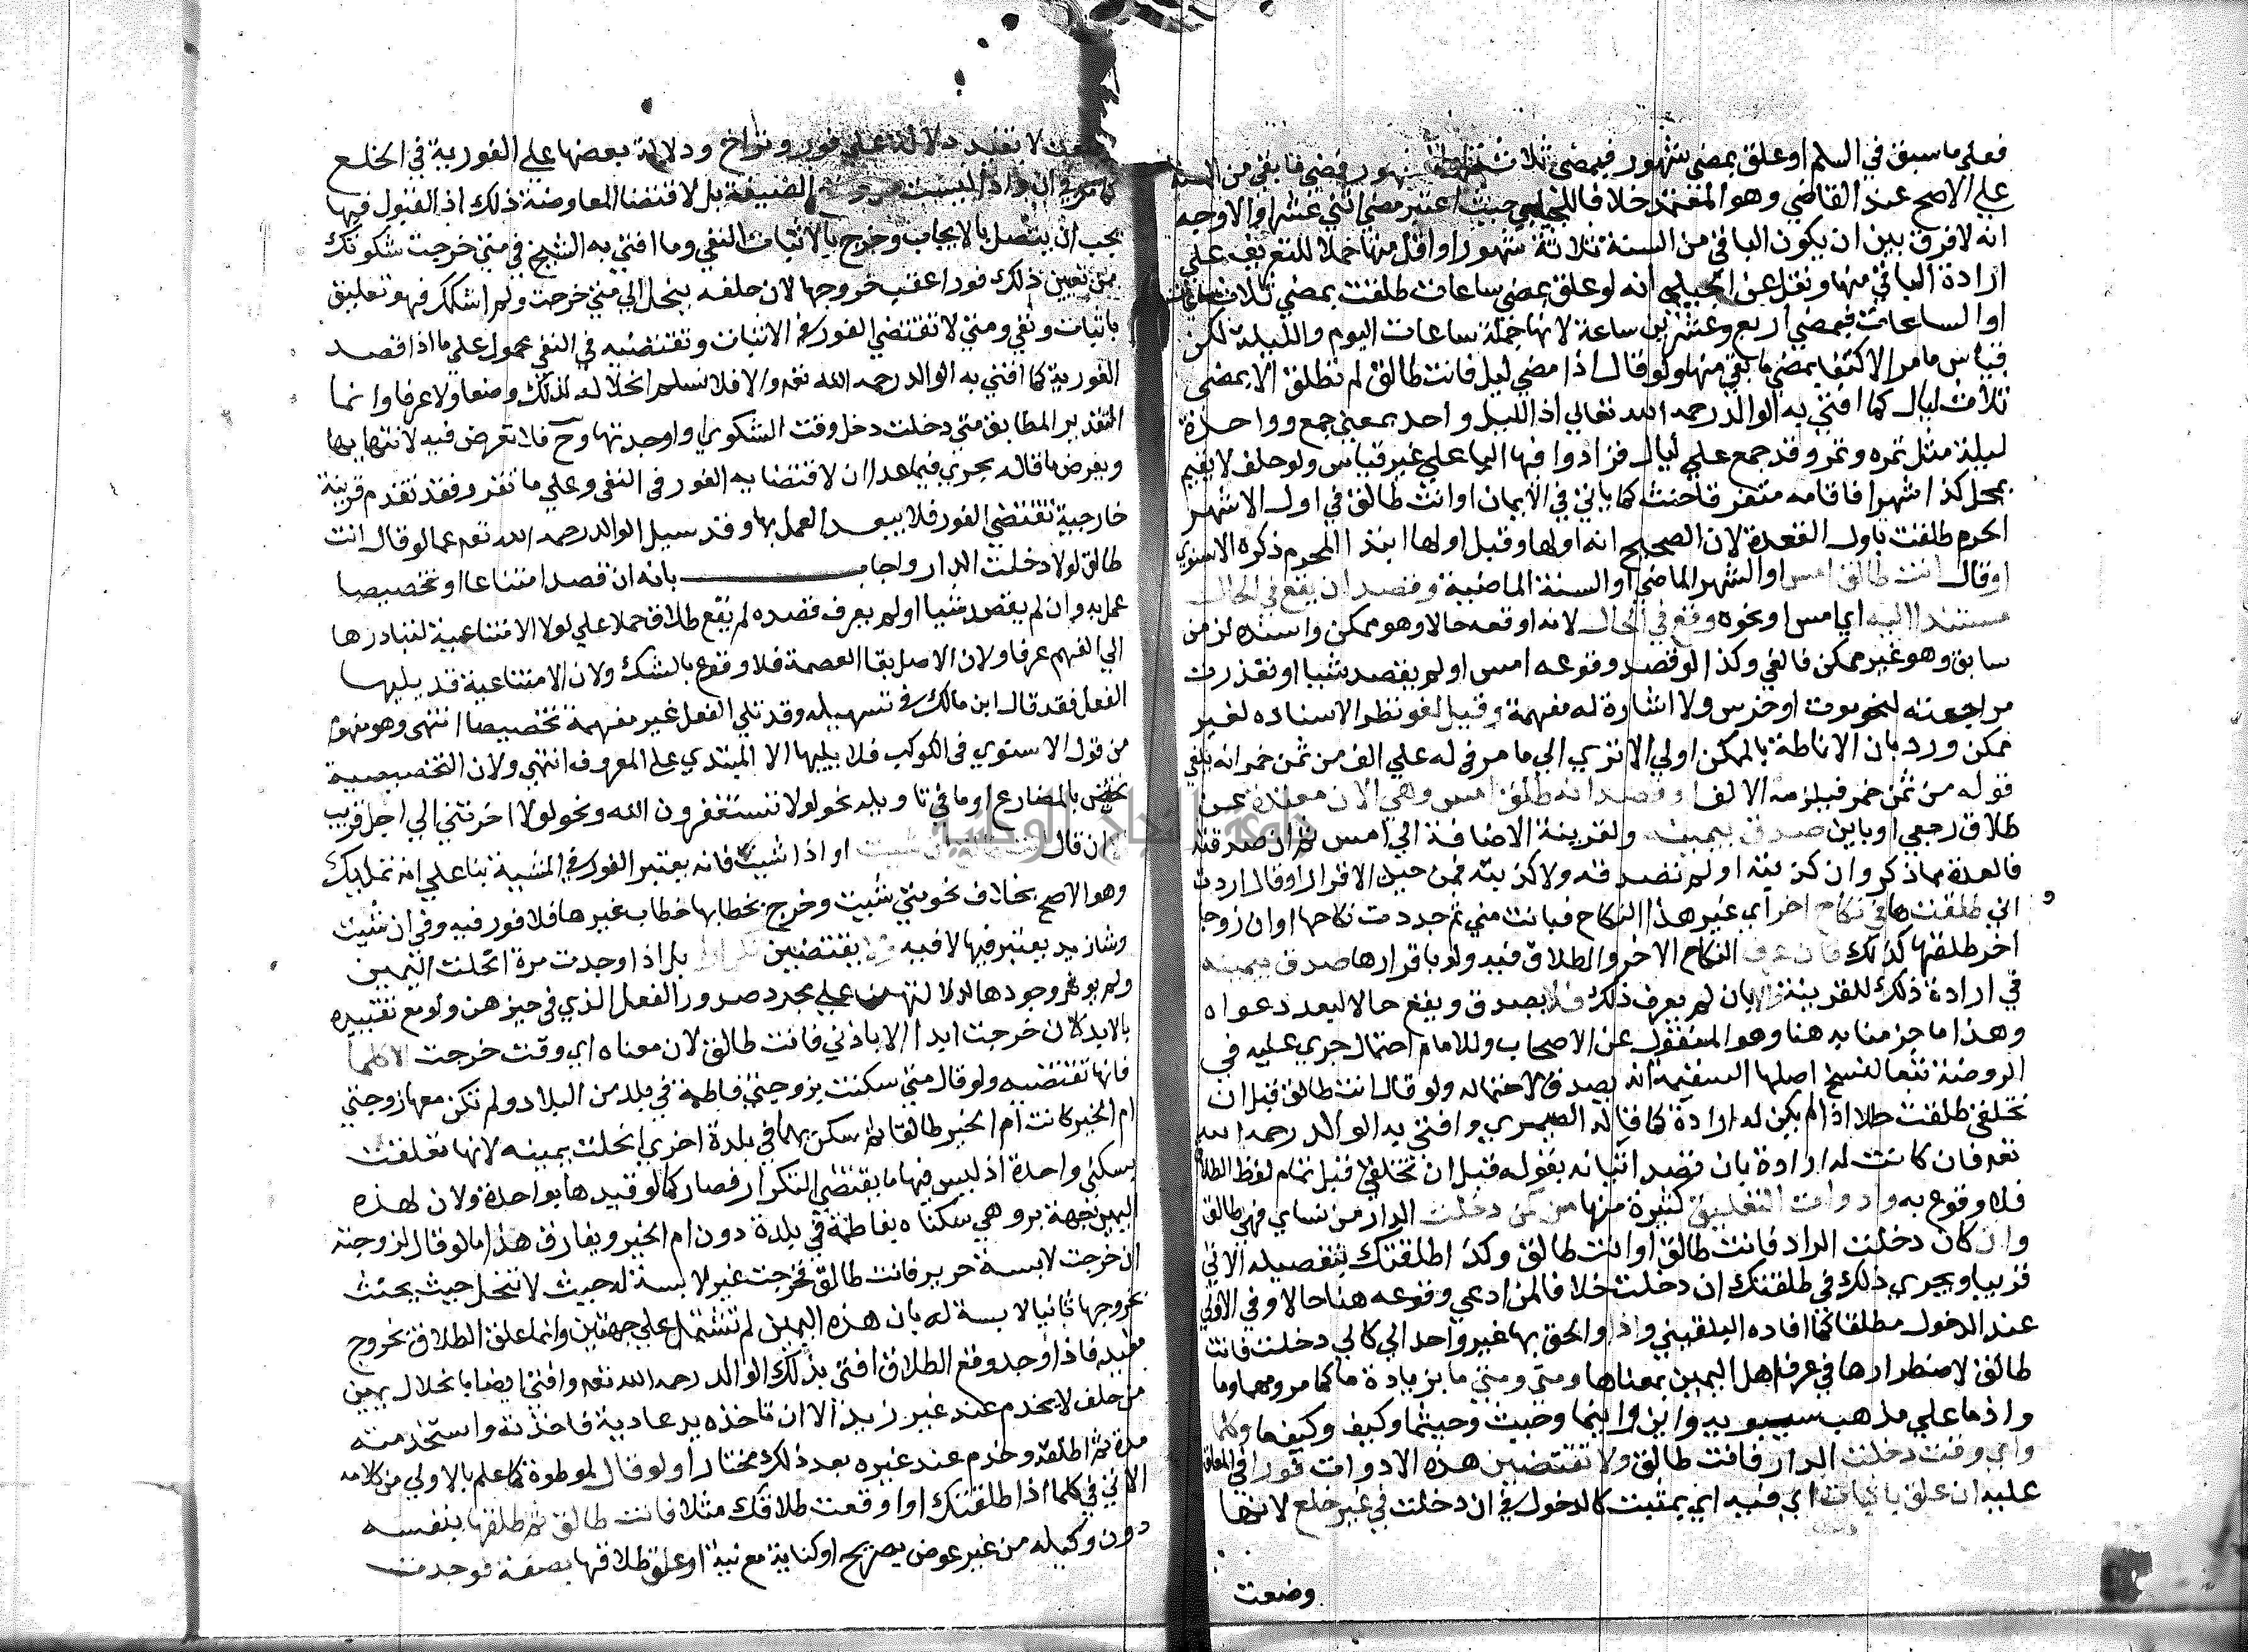 فعلي ما سبق في السلم او علق بمضي شهور فبمضي ثلاث شهور فمضي ما بقي من السنة
علي الاصح عند القاضي وهو المعتمد خلافا للجيلي حيث اعتبر مضي اثني عشرا والاوجه
انه لا فرق بين ان يكون الباقي من السنة ثلاثة شهور او اقل منها حملا للتعريف علي
ارادة الباقي منها ونقل عن الجيلي انه لو علق بمضي ساعات طلقت بمضي ثلاث ساعات
او الساعات فبمضي اربع وعشرين ساعة لانها جملة ساعات اليوم والليلة لكن
قياس ما مر الاكتفا بمضي ما بقي منها ولو قال اذا مضي ليل فانت طالق لم تطلق الا بمضي
ثلاث ليال كما افتي به الوالد رحمه الله تعالي اذ الليل واحد بمعني جمع وواحدة
ليلة مثل تمره وتمر وقد جمع علي ليال فزادوا فيها اليا علي غير قياس ولو حلف لا يقيم
بمحل كذا شهرا فاقامه متفرقا حنث كما ياتي في الايمان او انت طالق في اول الاشهر
الحرم طلقت باول القعدة لان الصحيح انه اولها وقيل اولها ابتدا المحرم ذكره الاسنوي
او قال انت طالق امس او الشهر الماضي او السنة الماضية وقصد ان يقع في الحال
مستندا اليه اي امس او نحوه وقع في الحال لانه اوقعه حالا وهو ممكن واسنده لزمن
سابق وهو غير ممكن فالغي وكذا لو قصد وقوعه امس او لم يقصد شيا او تعذرت
مراجعته لنحو موت او خرس ولا اشارة له مفهمة وقيل لغو نظرا لاسناده لغير
ممكن ورد بان الاناطة بالممكن اولي الا تري الي ما مر في له علي الف من ثمن خمر انه يلغي
قوله من ثمن خمر فيلزمه الالف او قصد انه طلق امس وهي الان معتدة عن
طلاق رجعي او باين صدق بيمينه ولقرينة الاضافة الي امس ثم ان صدقته
فالعدة مما ذكر وان كذبته او لم تصدقه ولا كذبته فمن حين الاقرار او قال اردت
اني طلقت ها في نكاح اخر اي غير هذا النكاح فبانت مني ثم جددت نكاحها او ان زوجا
اخر طلقها كذلك فان عرف النكاح الاخر والطلاق فيه ولو باقرارها صدق بيمينه
في ارادة ذلك للقرينة والا بان لم يعرف ذلك فلا يصدق ويقع حالا لبعد دعواه
وهذا ما جزما به هنا وهو المنقول عن الاصحاب وللامام احتمال جري عليه في
الروضة تبعا لنسخ اصلها السقيمة انه يصدق لاحتماله ولو قال انت طالق قبل ان
تخلقي طلقت حالا اذا لم يكن له ارادة كما قاله الصيمري وافتي به الوالد رحمه الله
تعه فان كانت له ارادة بان قصد اتيانه بقوله قبل ان تخلقي قبل تمام لفظ الطلاق
فلا وقوع به وادوات التعليق كثيرة منها من كمن دخلت الدار من نساي فهي طالق
وان كان دخلت الدار فانت طالق او انت طالق وكذا طلقتك بتفصيله الاتي
قريبا ويجري ذلك في طلقتك ان دخلت خلافا لمن ادعي وقوعه هنا حالا وفي الاولي
عند الدخول مطلقا كما افاده البلقيني واذا والحق بها غير واحد الي كالي دخلت فانت
طالق لاضطرارها في عرف اهل اليمين بمعناها ومتي ومتي ما بزيادة ما كما مر ومهما وما
واذ ما علي مذهب سيبويه واين واينما وحيث وحيثما وكيف وكيفما وكلما
واي وقت دخلت الدار فانت طالق ولا تقتضين هذه الادوات فورا في المعلق
عليه ان علق باثبات اي فيه اي بمثبت كالدخول في ان دخلت في غير خلع لانها
وضعت
لا بقيد دلالة علي فور وتراخ ودلالة بعضها علي الفورية في الخلع
كما مر في ان واذا ليست من وضع الصيغة بل لاقتضا المعاوضة ذلك اذ القبول فيها
يجب ان يتصل بالايجاب وخرج بالاثبات النفي وما افتي به الشيخ في متي خرجت شكوتك
من تعين ذلك فورا عقب خروجها لان حلفه ينحل الي متي خرجت ولم اشكك فهو تعليق
باثبات ونفي ومتي لا تقتضي الفور في الاثبات وتقتضيه في النفي محمول علي ما اذا قصد
الفورية كما افتي به الوالد رحمه الله تعه والا فلا نسلم انحلاله لذلك وضعا ولا عرفا وانما
التقدير المطابق متي دخلت دخل وقت الشكوي او اوجدتها وح فلا تعرض فيه لانتهايها
وبفرض ما قاله يجري فيما عدا ان لاقتضايه الفور في النفي وعلي ما تقرر فقد تقدم قرينة
خارجية تقتضي الفور فلا يبعد العمل بها وقد سيل الوالد رحمه الله تعه عما لو قال انت
طالق لولا دخلت الدار واجاب بانه ان قصد امتناعا او تخصيصا
عمل به وان لم يقصد شيا او لم يعرف قصده لم يقع طلاق حملا علي لولا الامتناعية لتبادرها
الي الفهم عرفا ولان الاصل بقا العصمة فلا وقوع بالشك ولان الامتناعية قد يليها
الفعل فقد قال ابن مالك في تسهيله وقد تلي الفعل غير مفهمة تخصيصا انتهي وهو مفهوم
من قول الاسنوي في الكوكب فلا يليها الا المبتدي علي المعروف انتهي ولان التخصيصية
تختص بالمضارع او ما في تاويله نحو لولا تستغفرون الله ونحو لولا اخرتني الي اجل قريب
ان قال انت طالق ان شيت او اذا شيت فانه يعتبر الفور في المشية بنا علي انه تمليك
وهو الاصح بخلاف نحو متي شيت وخرج بخطابها خطاب غيرها فلا فور فيه وفي ان شيت
وشا زيد يعتبر فيها لا فيه ولا يقتضين تكرارا بل اذا وجدت مرة انحلت اليمين
ولم يوثر وجودها لدلالتهن علي مجرد صدور الفعل الذي في حيزهن ولو مع تقييده
بالابد كان خرجت ابدا الا باذني فانت طالق لان معناه اي وقت خرجت الا كلما
فانها تقتضيه ولو قال متي سكنت بزوجتي فاطمة في بلد من البلاد ولم تكن معها زوجتي
ام الخير كانت ام الخير طالقا ثم سكن بهما في بلدة اخري انحلت يمينه لانها تعلقت
بسكني واحدة اذ ليس فيها ما يقتضي التكرار فصار كما لو قيدها بواحدة ولان لهذه
اليمين جهة بر وهي سكناه بفاطمة في بلدة دون ام الخير ويفارق هذا ما لو قال لزوجته
ان خرجت لابسة حرير فانت طالق فخرجت غير لابسة له حيث لا تنحل حيث يحنث
بخروجها ثانيا لابسة له بان هذه اليمين لم تشتمل علي جهتين وانما علق الطلاق بخروج
مقيد فاذا وجد وقع الطلاق افتي بذلك الوالد رحمه الله تعه وافتي ايضا بانحلال يمين
من حلف لا يخدم عند غير زيد الا ان تاخذه يد عادية فاخذته واستخدمته
مدة ثم اطلقته وخدم عند غيره بعد ذلك مختارا ولو قال لموطوة كما علم بالاولي من كلامه
الاتي في كلما اذا طلقتك او اوقعت طلاقك مثلا فانت طالق ثم طلقها بنفسه
دون وكيله من غير عوض بصريح او كناية مع نية او علق طلاقها بصفة فوجدت